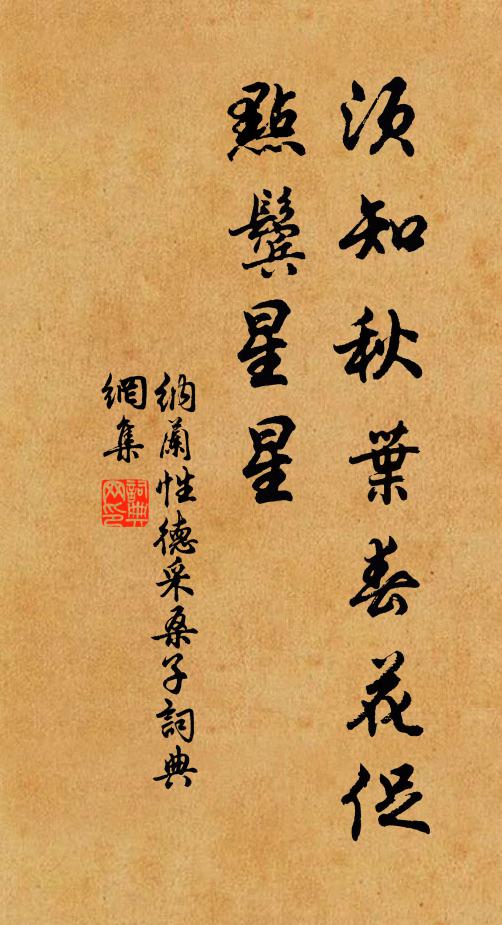 須知秋葉春花促
點鬢星星
納蘭性德采桑子詞典
網集
詞典
网印